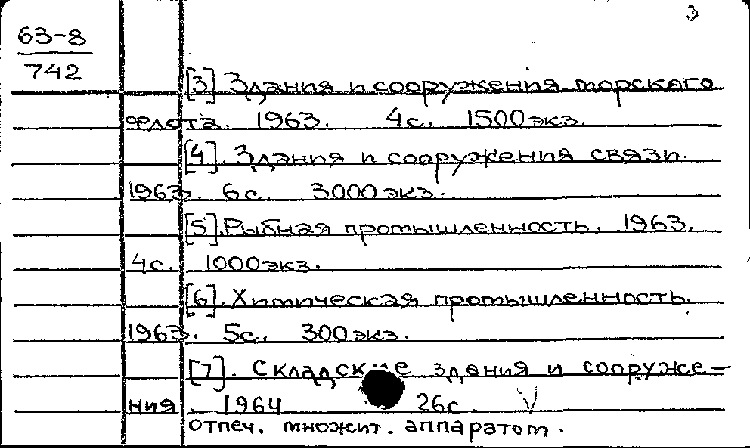 3
63-8
742
[3] Здания и сооружения морского
флота. 1963. 4с. 1500 экз.
[4]. Здания и сооружения связи.
1963. 6с. 3000 экз.
[5]. Рыбная промышленность. 1963.
4с. 1000 экз.
[6]. Химическая промышленность.
1963. 5с. 300 экз.
[7]. Складские здания и сооруже-
ния. 1964 26с.
отпеч. множит. аппаратом.